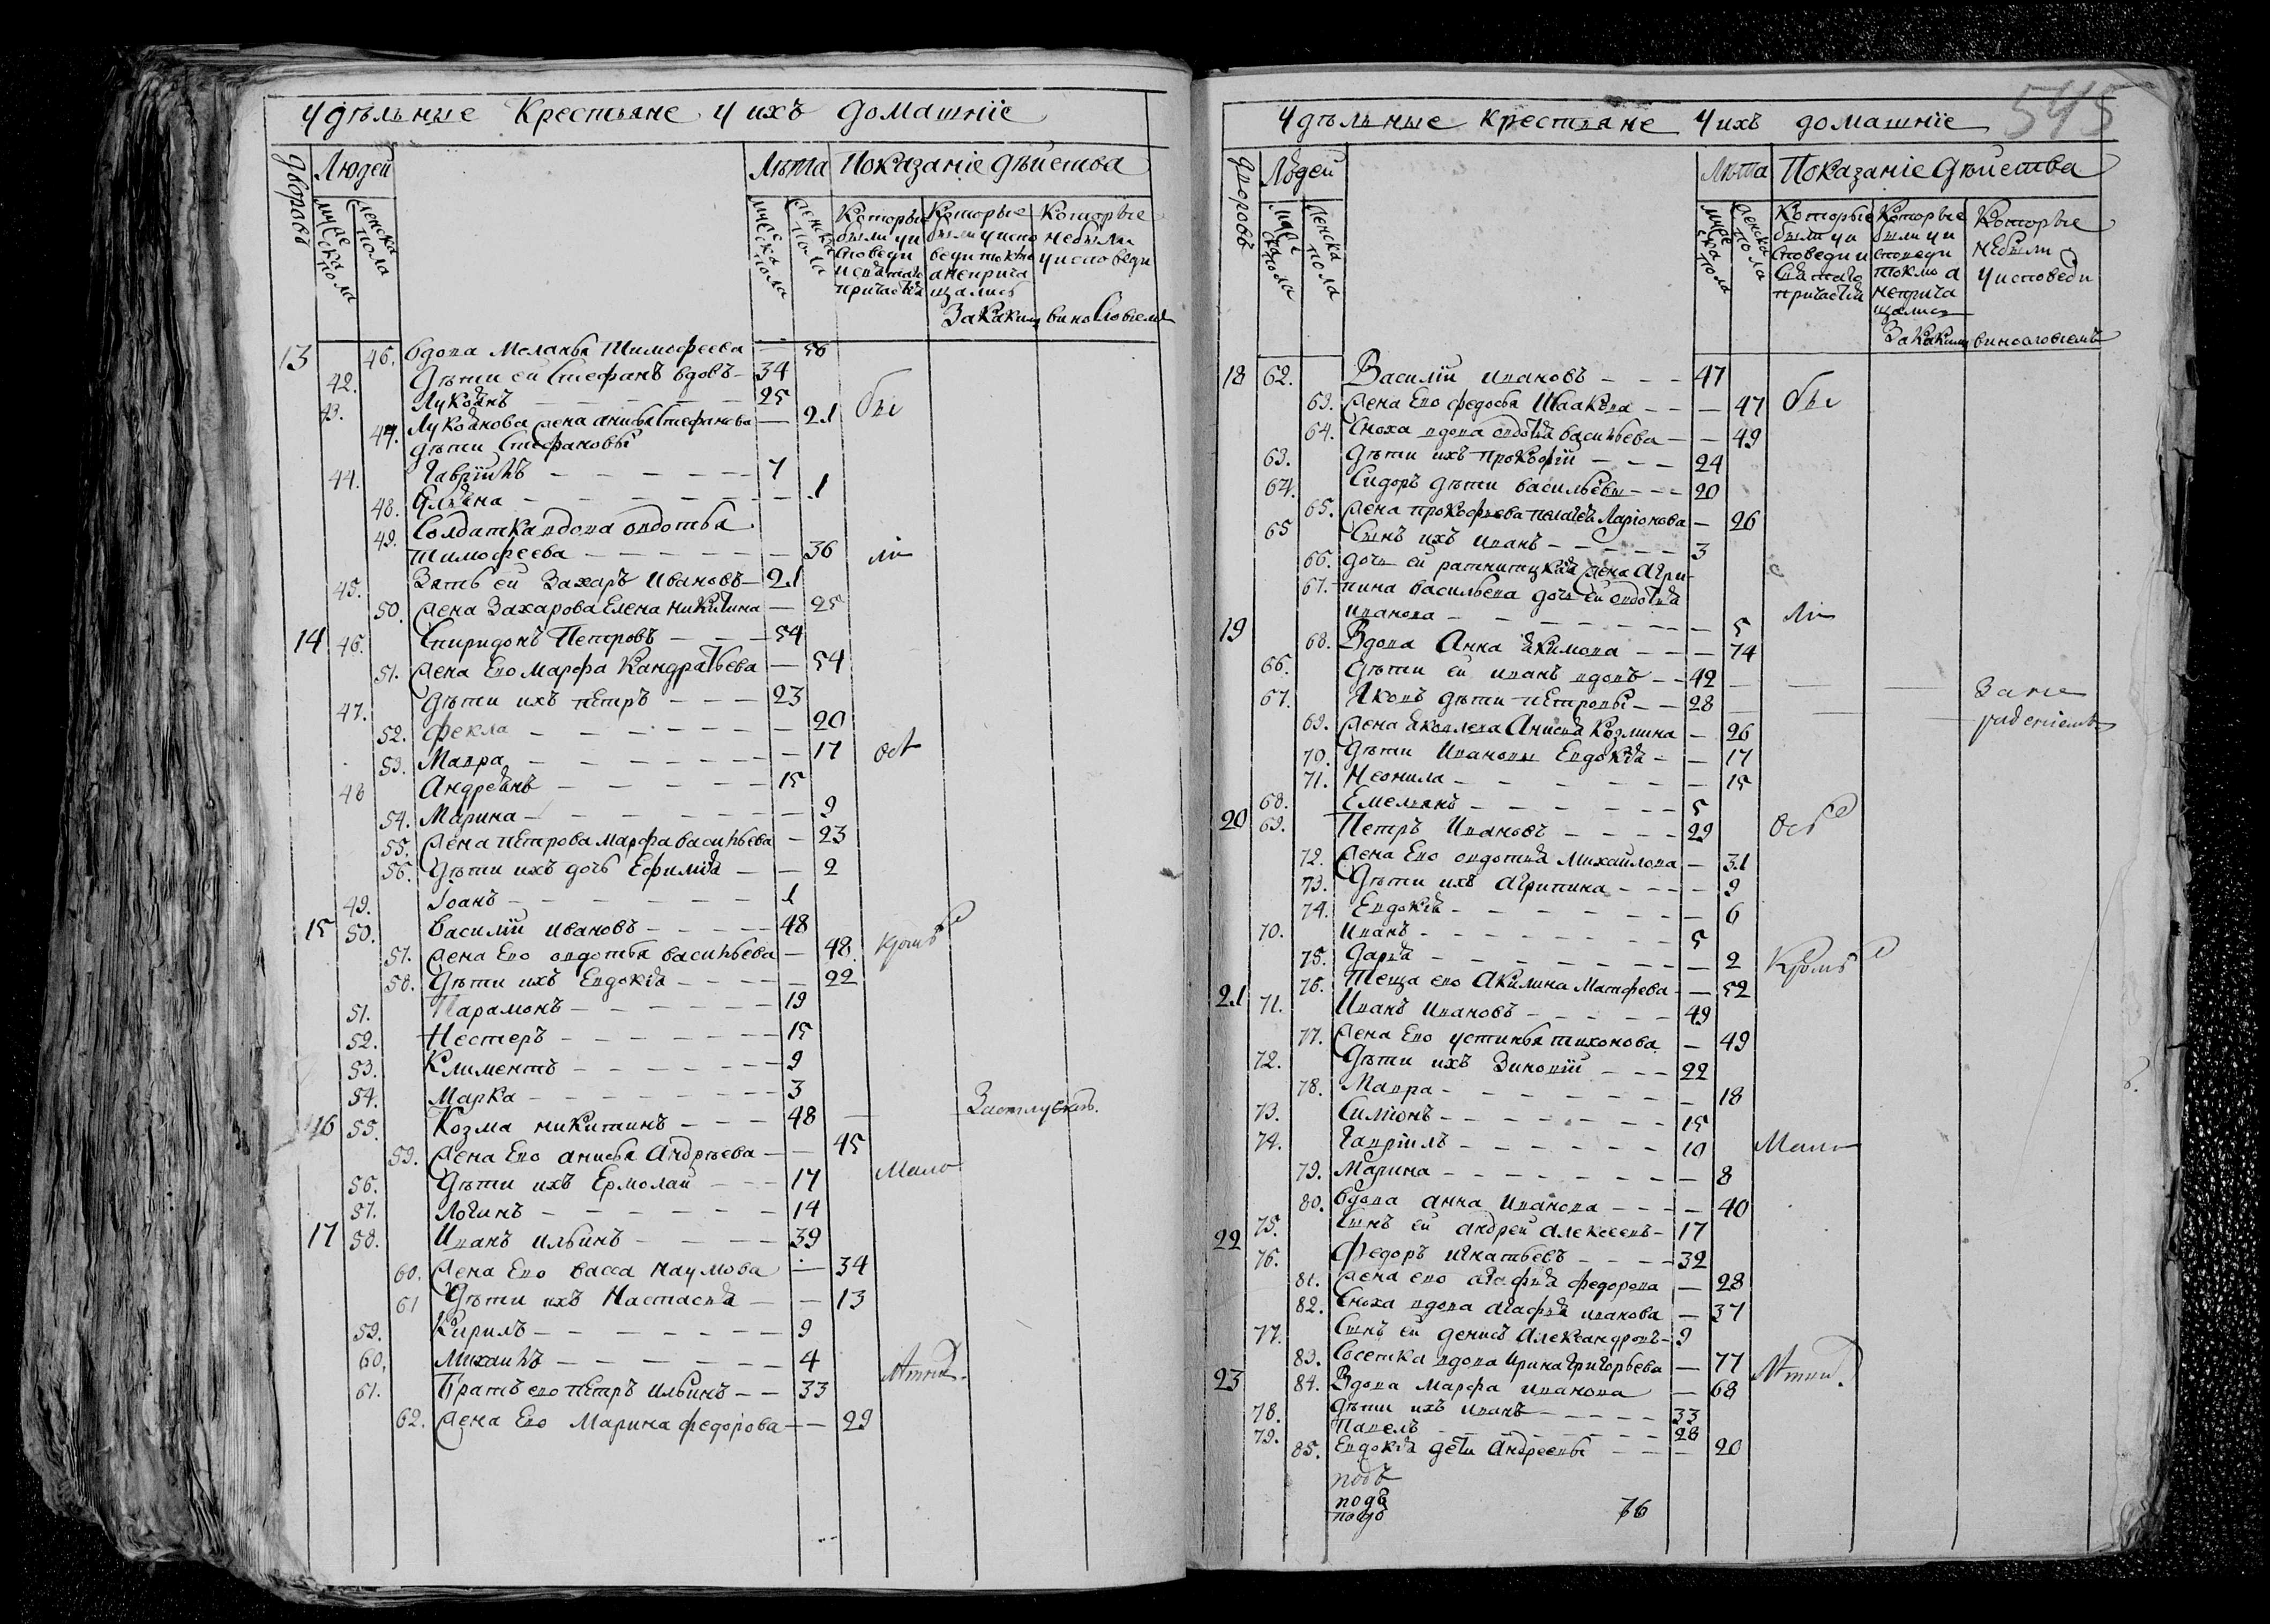 Удѣльные Крестьяне и ихъ домашніе
Дворовъ
Людей
Лѣта
Показаніе дѣйства
мужеска пола
женска пола
мужеска пола
женска пола
Которые были уисповеди исвятаго причастїя
Которые были уисповеди токмо анепричащались
Которые небыли уисповеди
Закакимъ винословіемъ
13 46. вдова Меланья Тимофеева — 56
42. Дѣти ей Стефанъ вдовъ 34
43. Лукоянъ 25 бы
47. Лукоянова жена анисья стефанова — 21
дѣти Стефановы
44. Гавріилъ 7
48. Ульяна 1
49. Солдатка вдова овдотья
Тимофеева 36 ли
45. Зять ей Захаръ Ивановъ 21
50. жена Захарова Елена никитина — 25
14 46. Спиридонъ Петровъ 54
51. жена Ево Марфа Кандратьева — 54
47. дѣти ихъ петръ 23
52. Фекла 20
53. Мавра 17
48 Андреянъ 15
54. Марина 9
55. жена петрова марфа васильева — 23
56. дѣти ихъ дочь Ефимія — 2
49. Іоанъ 1
15 50. василій ивановъ 48
57. жена Ево овдотья васильева — 48
58. Дѣти ихъ Евдокія 22
51. Парамонъ 19
52. Нестеръ 15
53. Климентъ 9
54. Марка 3
16 55. Козма никитинъ 48
59. жена Ево анисья Андрѣева — 45
56. Дѣти ихъ Ермолай 17 Мало
57. Логинъ 14
17 58. Иванъ ильинъ 39
60. жена Ево васса наумова — 34
61 Дѣти ихъ Настасія — 13
59. Кирилъ 9
60. михаилъ 4
61. Братъ ево петръ ильинъ 33
62. жена Ево Марина федорова — 29
545
Удѣльные крестьяне и ихъ домашніе
Дворовъ
Людей
Лѣта
Показаніе дѣйства
мужеска пола
женска пола
мужеска пола
женска пола
Которые были уисповеди и святаго причастїя
Которые были уисповеди токмо а непричащались
Которые небыли уисповеди
Закакимъ винословіемъ
18 62. Василій ивановъ 47
63. жена Ево федосья Исаакова — 47 бы
64. Сноха вдова овдотья васильева — 49
63. дѣти ихъ прокофій 24
64. Сидоръ дѣти васильевы 20
65. жена прокофьева пелагея Ларіонова — 26
65 Сынъ ихъ иванъ 3
66. дочь ей ратницкая жена Агри-
67. пина васильева дочь ей овдотья
иванова — 5 ли
19 68. Вдова Анна акимова — 74
66. Дѣти ей иванъ вдовъ 42 — — — За не
67. Яковъ дѣти петровы 28 — — радѣніемъ
69. жена яковлева Анисья Козмина — 26
70. дѣти Ивановы Евдокія — 17
71. Неонила — 15
68. Емельянъ 5
20 69. Петръ Ивановъ 29
72. жена Ево овдотья Михайлова — 31
73. Дѣти ихъ агрипина — 9
74. Евдокія — 6
70. иванъ 5
75. Дарья — 2
76. Теща ево Акилина Матфева — 52
21 71. Иванъ ивановъ 49
77. жена Ево устинья тихонова — 49
72. Дѣти ихъ Зиновій 22
78. Мавра — 18
73. Симіонъ 15
74. Гавріилъ 10 Мало
79. Марина — 8
80. вдова анна иванова — 40
75. Сынъ ей андрей алексеевъ 17
22 76. Федоръ игнатьевъ 32
81. жена ево агафья федорова — 28
82. Сноха вдова агафья иванова — 37
77. Сынъ ей денисъ александровъ 9
83. Соседка вдова ирина григорьева — 77
23 84. Вдова марфа иванова — 68
78. Дѣти ихъ иванъ 33
79. Павелъ 28
85. Евдокія дети андреевы — 20
подъ
подъ
76